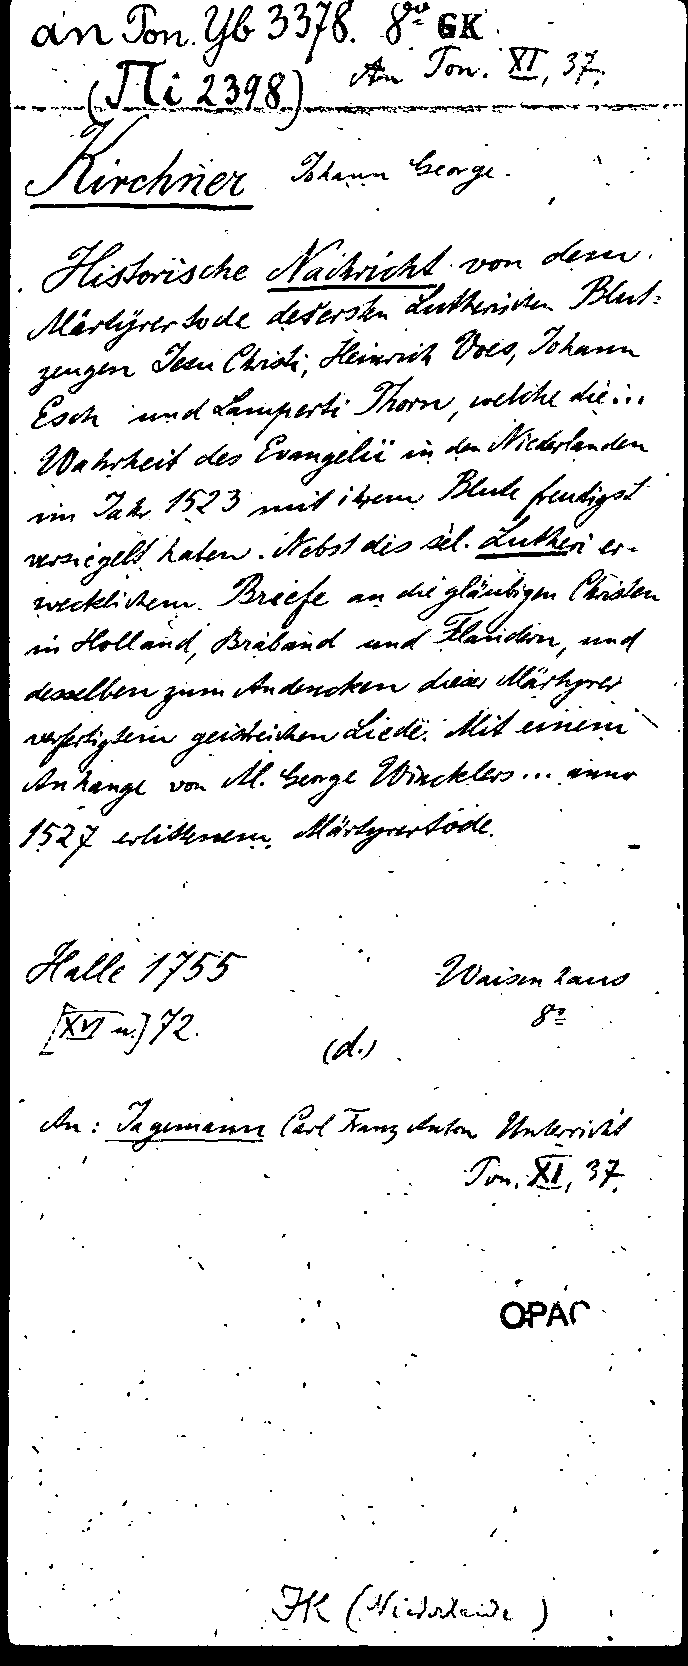 an Ton. Yb 3378. 8º GK
(Πi 2398) An Ton. XI, 37.
Kirchner Johann George.
Historische Nachricht von dem
Märtÿrertode der ersten Lutherischen Blut=
zeugen Jesu Christi, Heinrich Voes, Johann
Esch und Lamperti Thorn, welche die...
Wahrheit des Evangelii in den Niederlanden
im Jahr 1523 mit ihrem Blute
versiegelt haben. Nebst des sel. Lutheri er-
wecklichem Briefe an die gläubigen Christen
in Holland, Braband und Flandern, und
desselben zum Andencken dieser Märtyrer
verfertigtem geistreichen Liede. Mit einem
Anhange von M. George Wincklers... anno
1527 erlittenem Märtyrertode.
Halle 1755 Waisenhaus
[XVI u.] 72. 8º
(d.)
An: Jagemann Carl Franz Anton Unterricht
Ton. XI, 37.
OPAC
JK (Niederlande)